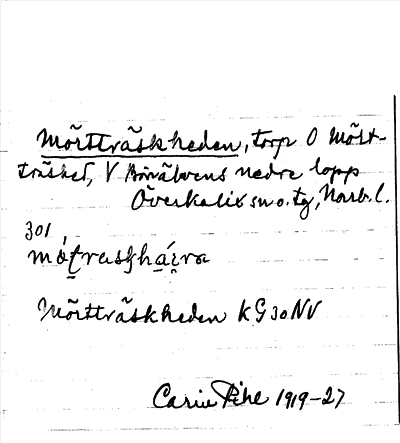 Mörtträskheden, torp O Mört-
träsket, V Ängesåns nedre lopp
Överkalix sn o. tg, Norrb. l.
301
Mörtträskheden KG30NV
Carin Pihl 1919-27